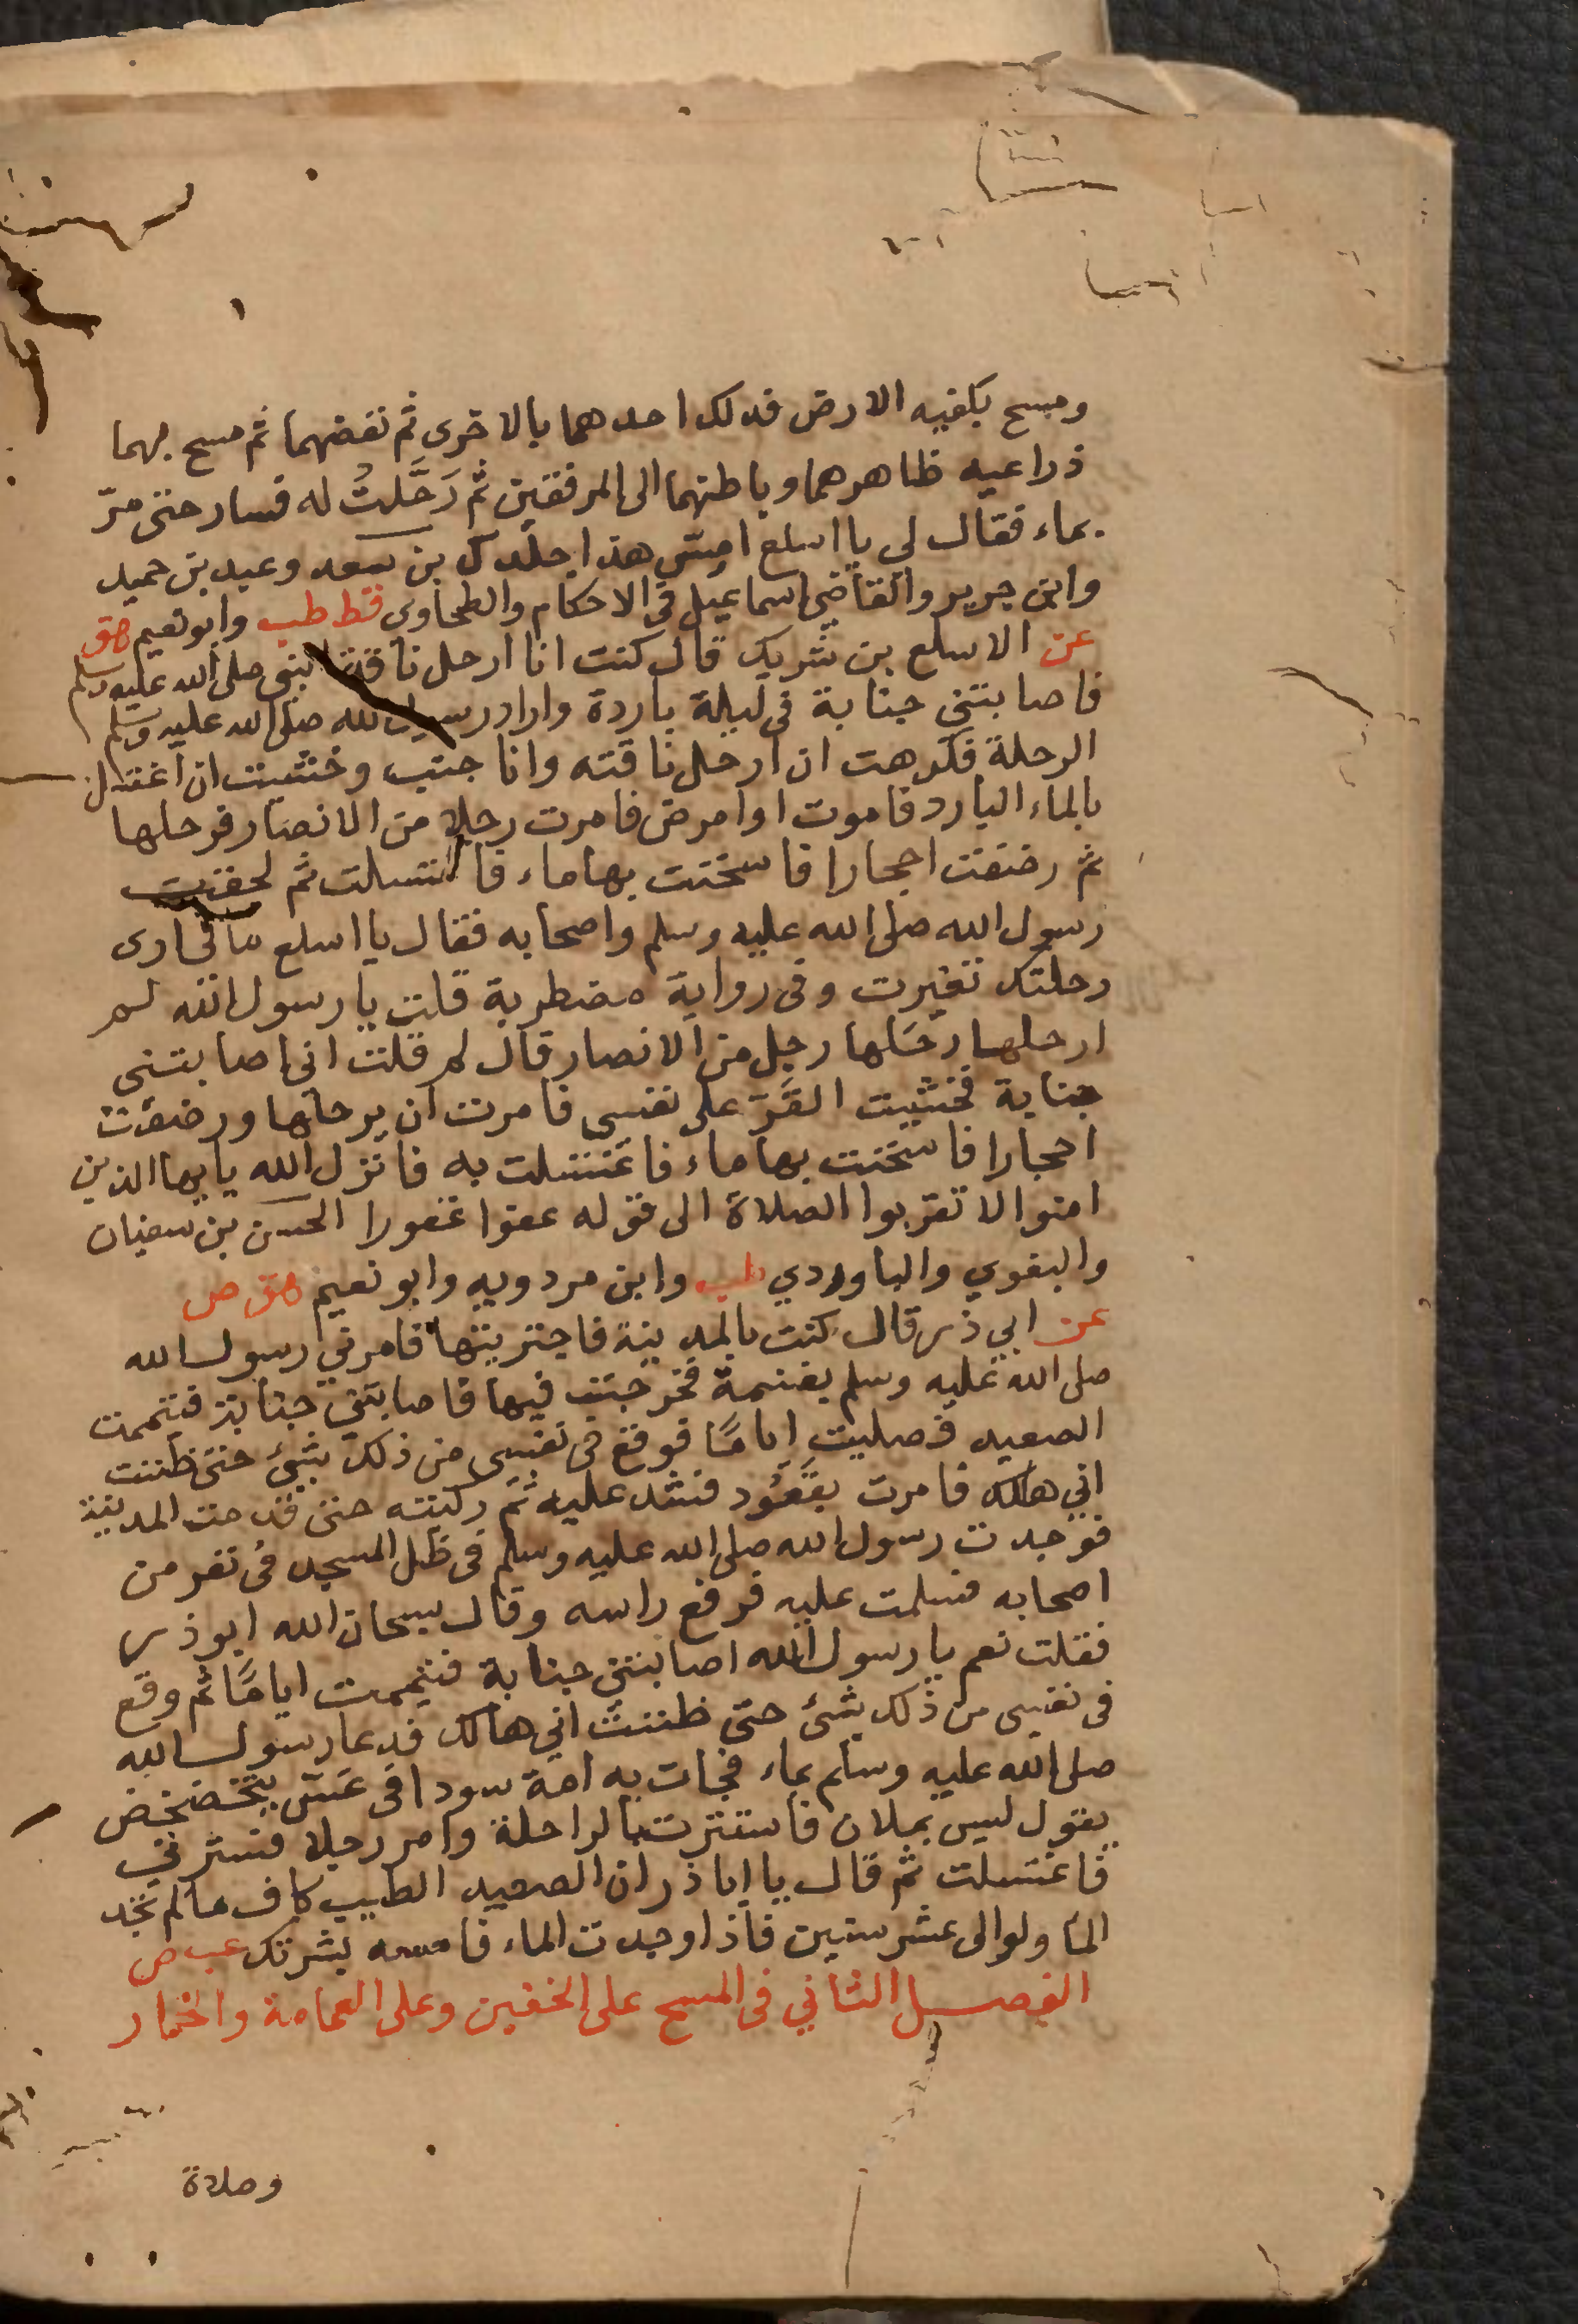 ومسح بكفيه الارض فدلك احدهما بالاخرى ثم نفضهما ثم مسح بهما
ذراعيه ظاهرهما وباطنهما الى المرفقين ثم رَحَّلتُ له فسار حتى مرّ
بماء فقال لى يا اسلع امس هذا جلدك بن سعد وعبد بن حميد
وابن جرير والقاضي اسماعيل في الاحكام والطحاوى قط طب وابو نعيم هق
عن الاسلع بن شريك قال كنت انا ارحل ناقة النبى صلى الله عليه وسلم
فاصابتني جنابة في ليلة باردة واراد رسول الله صلى الله عليه وسلم
الرحلة فكرهت ان ارحل ناقته وانا جنب وخشيت ان اغتسل
بالماء البارد فاموت او امرض فامرت رجلا من الانصار فرحلها
ثم رضفت احجارا فاسخنت بها ماء فاغتسلت ثم لحقت
رسول الله صلى الله عليه وسلم واصحابه فقال يا اسلع مالى ارى
رحلتك تغيرت وفى رواية مضطربة قلت يا رسول الله لم
ارحلها رحَلها رجل من الانصار قال لم قلت انى اصابتنى
جنابة فخشيت القَرّ على نفسى فامرت ان يرحلها ورضفت
احجارا فاسخنت بها ماء فاغتسلت به فانزل الله يا يها الذين
امنوا لا تقربوا الصلاة الى قوله عفوا غفورا الحسن بن سفيان
والبغوي والباوردي طب وابن مردويه وابو نعيم هق ص
عن ابي ذر قال كنت بالمدينة فاجتويتها فامرني رسول الله
صلى الله عليه وسلم بغنيمة فخرجت فيها فاصابتني جنابة فتيممت
الصعيد فصليت اياما فوقع في نفسى من ذلك شئ حتى ظننت
اني هالك فامرت بقَعُود فشد عليه ثم ركبته حتى قدمت المدينة
فوجدت رسول الله صلى الله عليه وسلم فى ظل المسجد فى نفر من
اصحابه فسلمت عليه فرفع راسه وقال سبحان الله ابو ذر
فقلت نعم يا رسول الله اصابتنى جنابة فتيممت اياما ثم وقع
فى نفسى من ذلك شئ حتى ظننت اني هالك فدعا رسول الله
صلى الله عليه وسلم بماء فجات به امة سودا فى عس يتخضخض
يقول ليس بملان فاستترت بالراحلة وامر رجلا فسترنى
فاغتسلت ثم قال يا ابا ذر ان الصعيد الطيب كاف ما لم تجد
الما ولو الى عشر سنين فاذا وجدت الماء فامسه بشرتك عب ص
الفصل الثاني فى المسح على الخفين وعلى العمامة والخمار
وصلاة